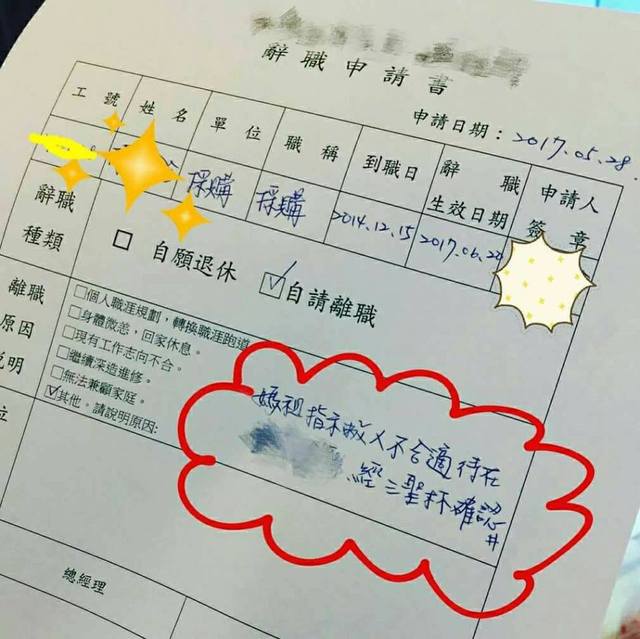 辭職申請書
申請日期：2017.05.28.
工號 姓名 單位 職稱 到職日 辭職生效日期 申請人簽章
採購 採購 2014.12.15 2017.06.20
辭職種類
□ 自願退休 ☑ 自請離職
離職原因說明
□個人職涯規劃，轉換職涯跑道
□身體微恙，回家休息。
□現有工作志向不合。
□繼續深造進修。
□無法兼顧家庭。
☑其他。請說明原因:
媽祖指示敝人不合適待在
經三聖杯確認#
位
總經理